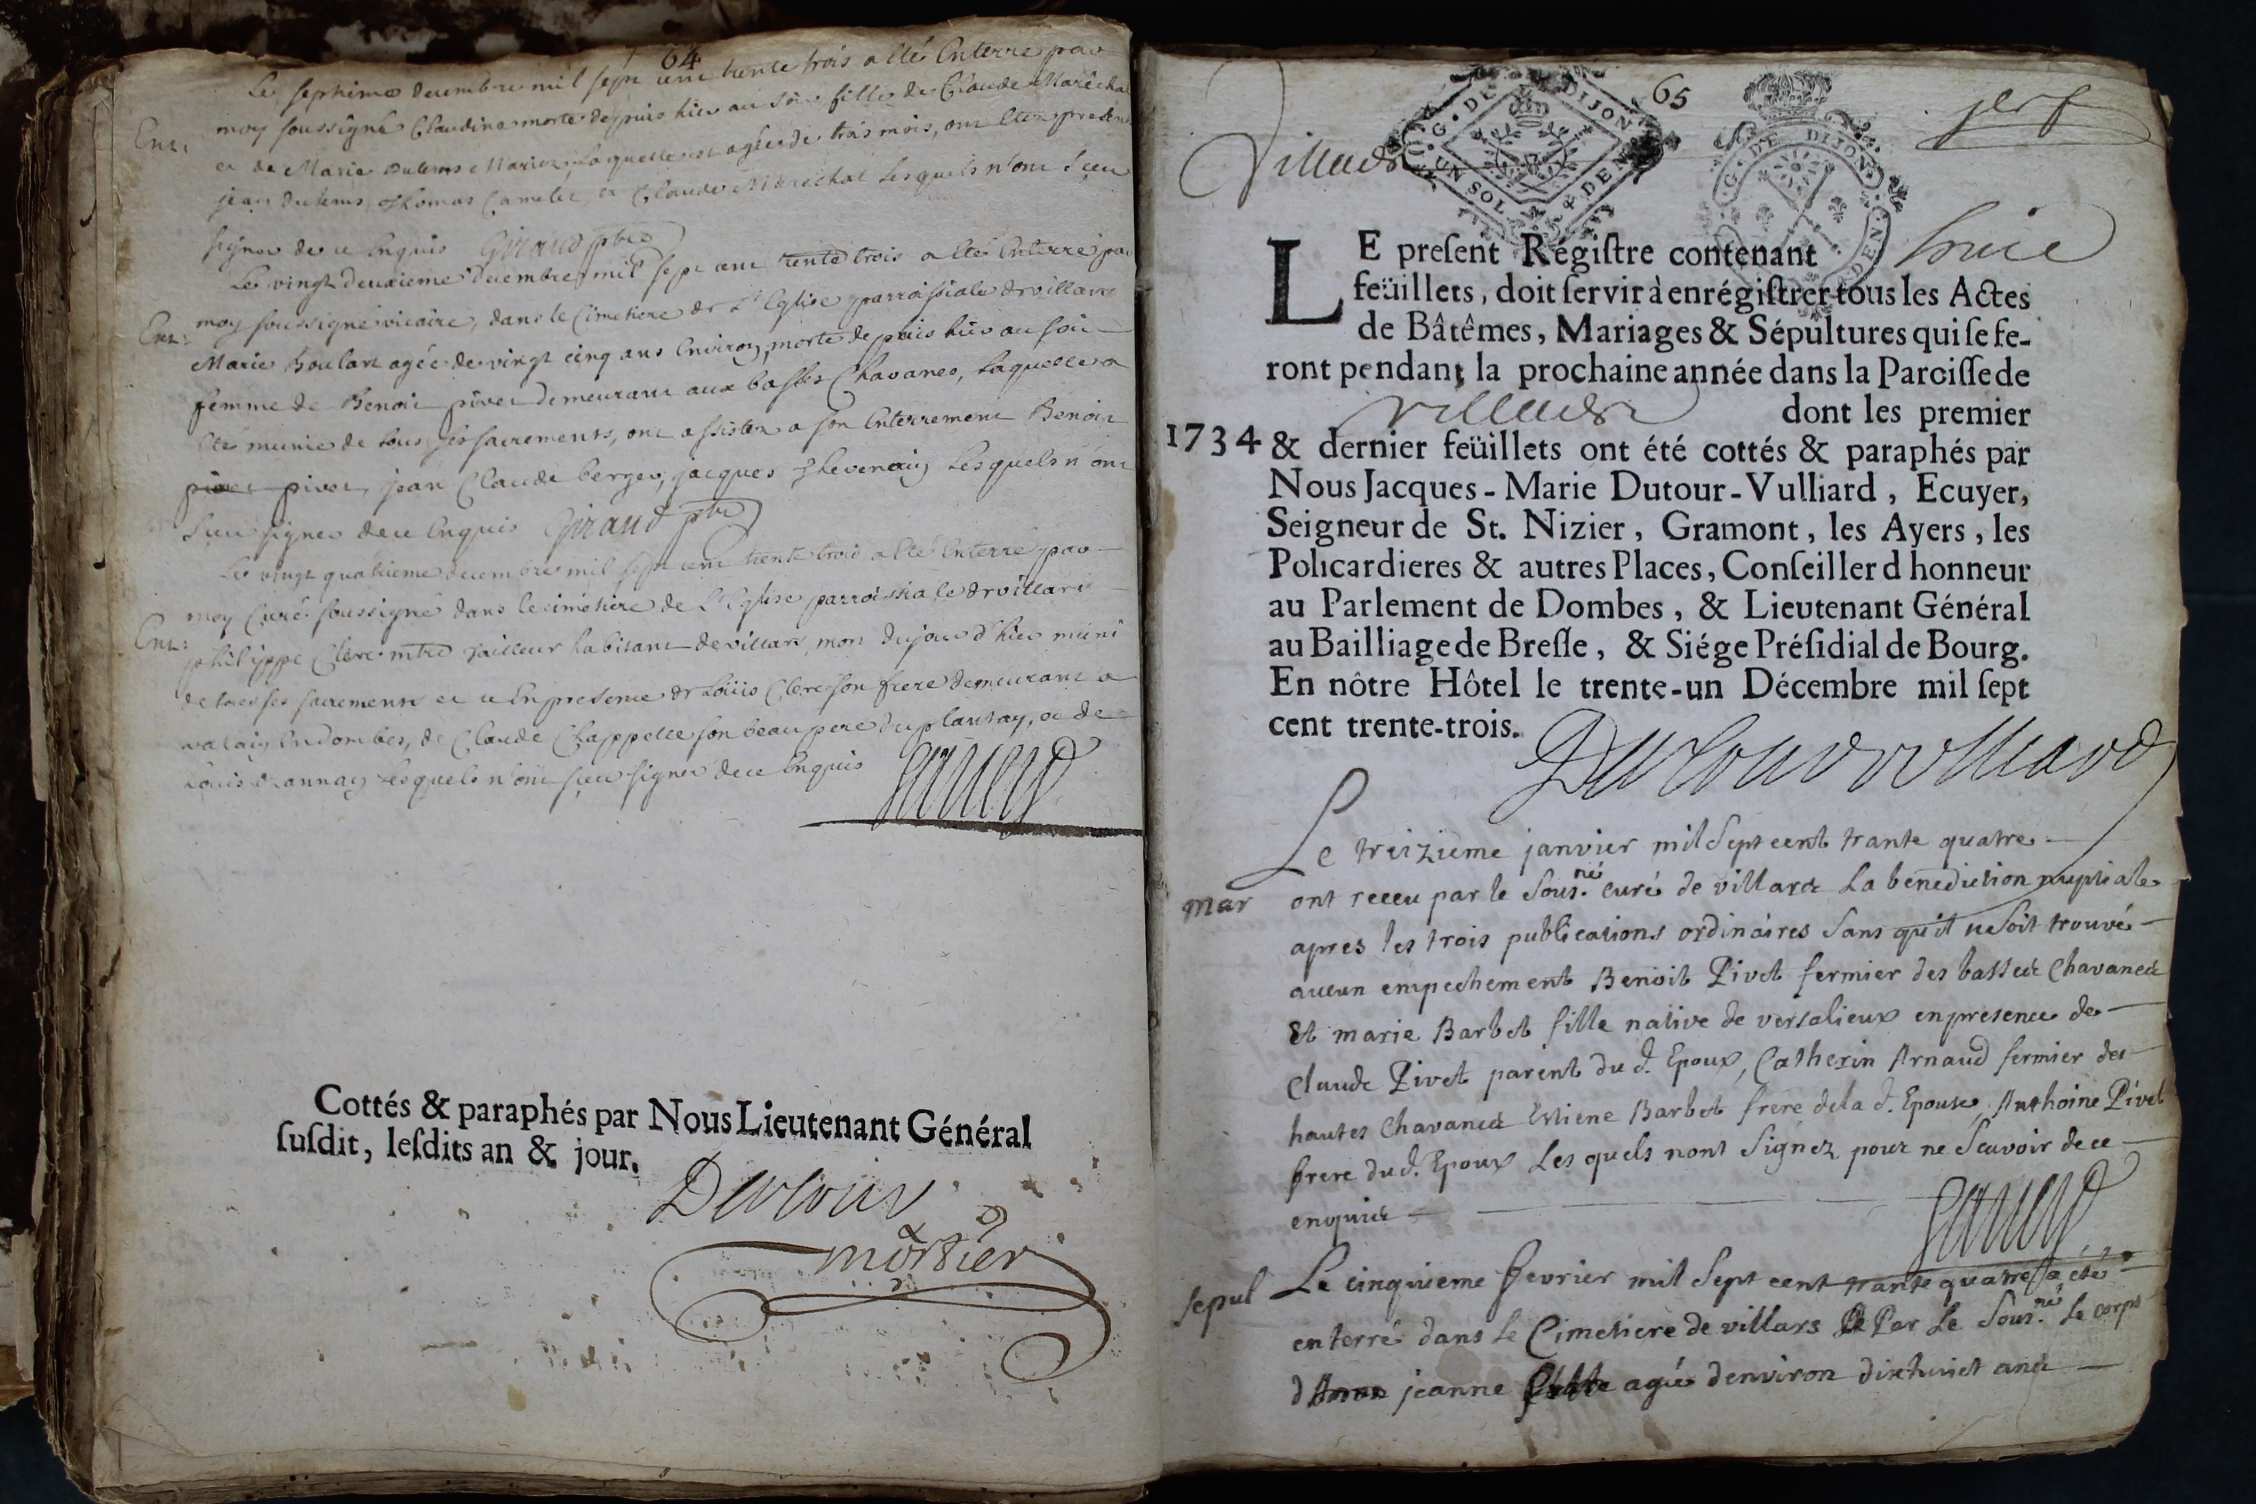 64
Le septieme decembre mil sept cent trente trois a eté enterré par
moy soussigné Claudine morte depuis hier au soir fille de Claude Maréchal
Ent:
et de Marie Dutems Mariez, laquelle est agée de trois mois, ont eté present
jean dutems, thomas Camelet et Claude Maréchal lesquels n'ont sceu
signer de ce enquis Giraud ptre
Le vingt deuxieme decembre mil sept cent trente trois a eté enterré par
moy soussigné vicaire, dans le Cimetiere de l'Eglise parroissiale de villars
Ent:
Marie Boulart agée de vingt cinq ans environ, morte depuis hier au soir
femme de Benoit pivet demeurant aux basses Chavanes, laquelle a
eté munie de tous ses sacrements, ont assistez a son enterrement Benoit
pivet, jean Claude berger, jacques thevenain lesquels n'ont
sceu signer de ce enquis Giraud ptre
Le vingt quatrieme decembre mil sept cent trente trois a eté enterré par
moy Curé soussigné dans le cimétiere de l'Eglise parroissiale de villars
Ent:
philippe Clerc mtre tailleur habitant de villars, mort du jour d'hier muni
de tous ses sacrements et ce en presence de Loüis Clerc son frere demeurant a
en dombes, de Claude Chappelle son beau pere du plantay, et de
Louis lesquels n'ont sceu signer de ce enquis
Cottés & paraphés par Nous Lieutenant Général
susdit, lesdits an & jour.
Dutour
mortier
65
Villars
G. DE DIJON
UN SOL
DEN
G. DE DIJON
DEN
huit
LE present Régistre contenant
feüillets, doit servir à enrégistrer tous les Actes
de Bâtêmes, Mariages & Sépultures qui se fe-
ront pendant la prochaine année dans la Paroisse de
villars dont les premier
1734 & dernier feüillets ont été cottés & paraphés par
Nous Jacques-Marie Dutour-Vulliard, Ecuyer,
Seigneur de St. Nizier, Gramont, les Ayers, les
Policardieres & autres Places, Conseiller d honneur
au Parlement de Dombes, & Lieutenant Général
au Bailliage de Bresse, & Siége Présidial de Bourg.
En nôtre Hôtel le trente-un Décembre mil sept
cent trente-trois.
Dutour vulliard
Le treizieme janvier mil Sept cent trante quatre
mar
ont receu par le Sous.né curé de villars La benediction nuptiale
apres les trois publications ordinaires Sans qu'il se Soit trouvé
aucun empechement Benoit Pivet fermier des basses Chavanes
Et marie Barbet fille native de versalieux en presence de
Claude Pivet parent du d. Epoux, Catherin Arnaud fermier des
hautes Chavanes Estiene Barbet frere de la d. Epouse, Anthoine Pivet
frere du d. Epoux Les quels nont Signez pour ne Scavoir de ce
enquis
sepul
Le cinquieme fevrier mil Sept cent trante quatre a eté
enterré dans Le Cimetiere de villars Par Le Sous.né Le corps
d jeanne agée denviron dixhuict ans